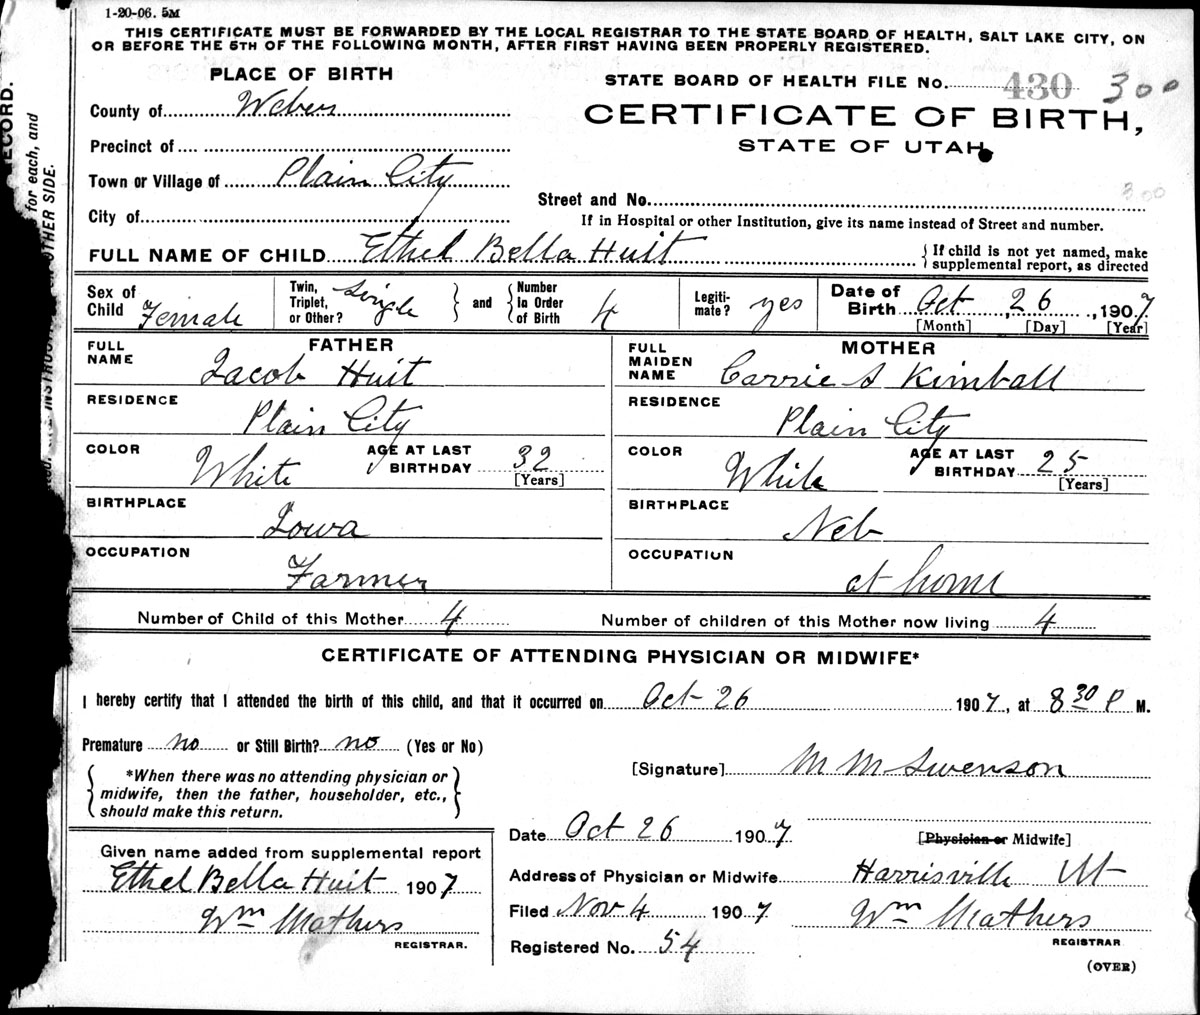 1-20-06. 5M
THIS CERTIFICATE MUST BE FORWARDED BY THE LOCAL REGISTRAR TO THE STATE BOARD OF HEALTH, SALT LAKE CITY, ON
OR BEFORE THE 5TH OF THE FOLLOWING MONTH, AFTER FIRST HAVING BEEN PROPERLY REGISTERED.
PLACE OF BIRTH
STATE BOARD OF HEALTH FILE No. 430 300
County of Weber
CERTIFICATE OF BIRTH,
STATE OF UTAH
Precinct of
Town or Village of Plain City
300
Street and No.
City of
If in Hospital or other Institution, give its name instead of Street and number.
FULL NAME OF CHILD Ethel Bella Huit { If child is not yet named, make
supplemental report, as directed
Sex of Child Female Twin, Triplet, or Other? Single } and { Number in Order of Birth 4 Legiti-mate? yes Date of Birth Oct 26, 1907
[Month] [Day] [Year]
FATHER
FULL NAME Jacob Huit
MOTHER
FULL MAIDEN NAME Carrie S Kimball
RESIDENCE Plain City
RESIDENCE Plain City
COLOR White AGE AT LAST BIRTHDAY 32 [Years]
COLOR White AGE AT LAST BIRTHDAY 25 [Years]
BIRTHPLACE Iowa
BIRTHPLACE Neb
OCCUPATION Farmer
OCCUPATION at home
Number of Child of this Mother 4 Number of children of this Mother now living 4
CERTIFICATE OF ATTENDING PHYSICIAN OR MIDWIFE*
I hereby certify that I attended the birth of this child, and that it occurred on Oct 26 1907, at 8 30 P M.
Premature no or Still Birth? no (Yes or No)
[Signature] M M Swenson
{ *When there was no attending physician or
midwife, then the father, householder, etc.,
should make this return. }
Date Oct 26 1907
[Physician or Midwife]
Given name added from supplemental report
Ethel Bella Huit 1907
Wm Mathers
REGISTRAR.
Address of Physician or Midwife Harrisville Ut
Filed Nov 4 1907 Wm Mathers
REGISTRAR
Registered No. 54
(OVER)
RECORD.
for each, and
OTHER SIDE.